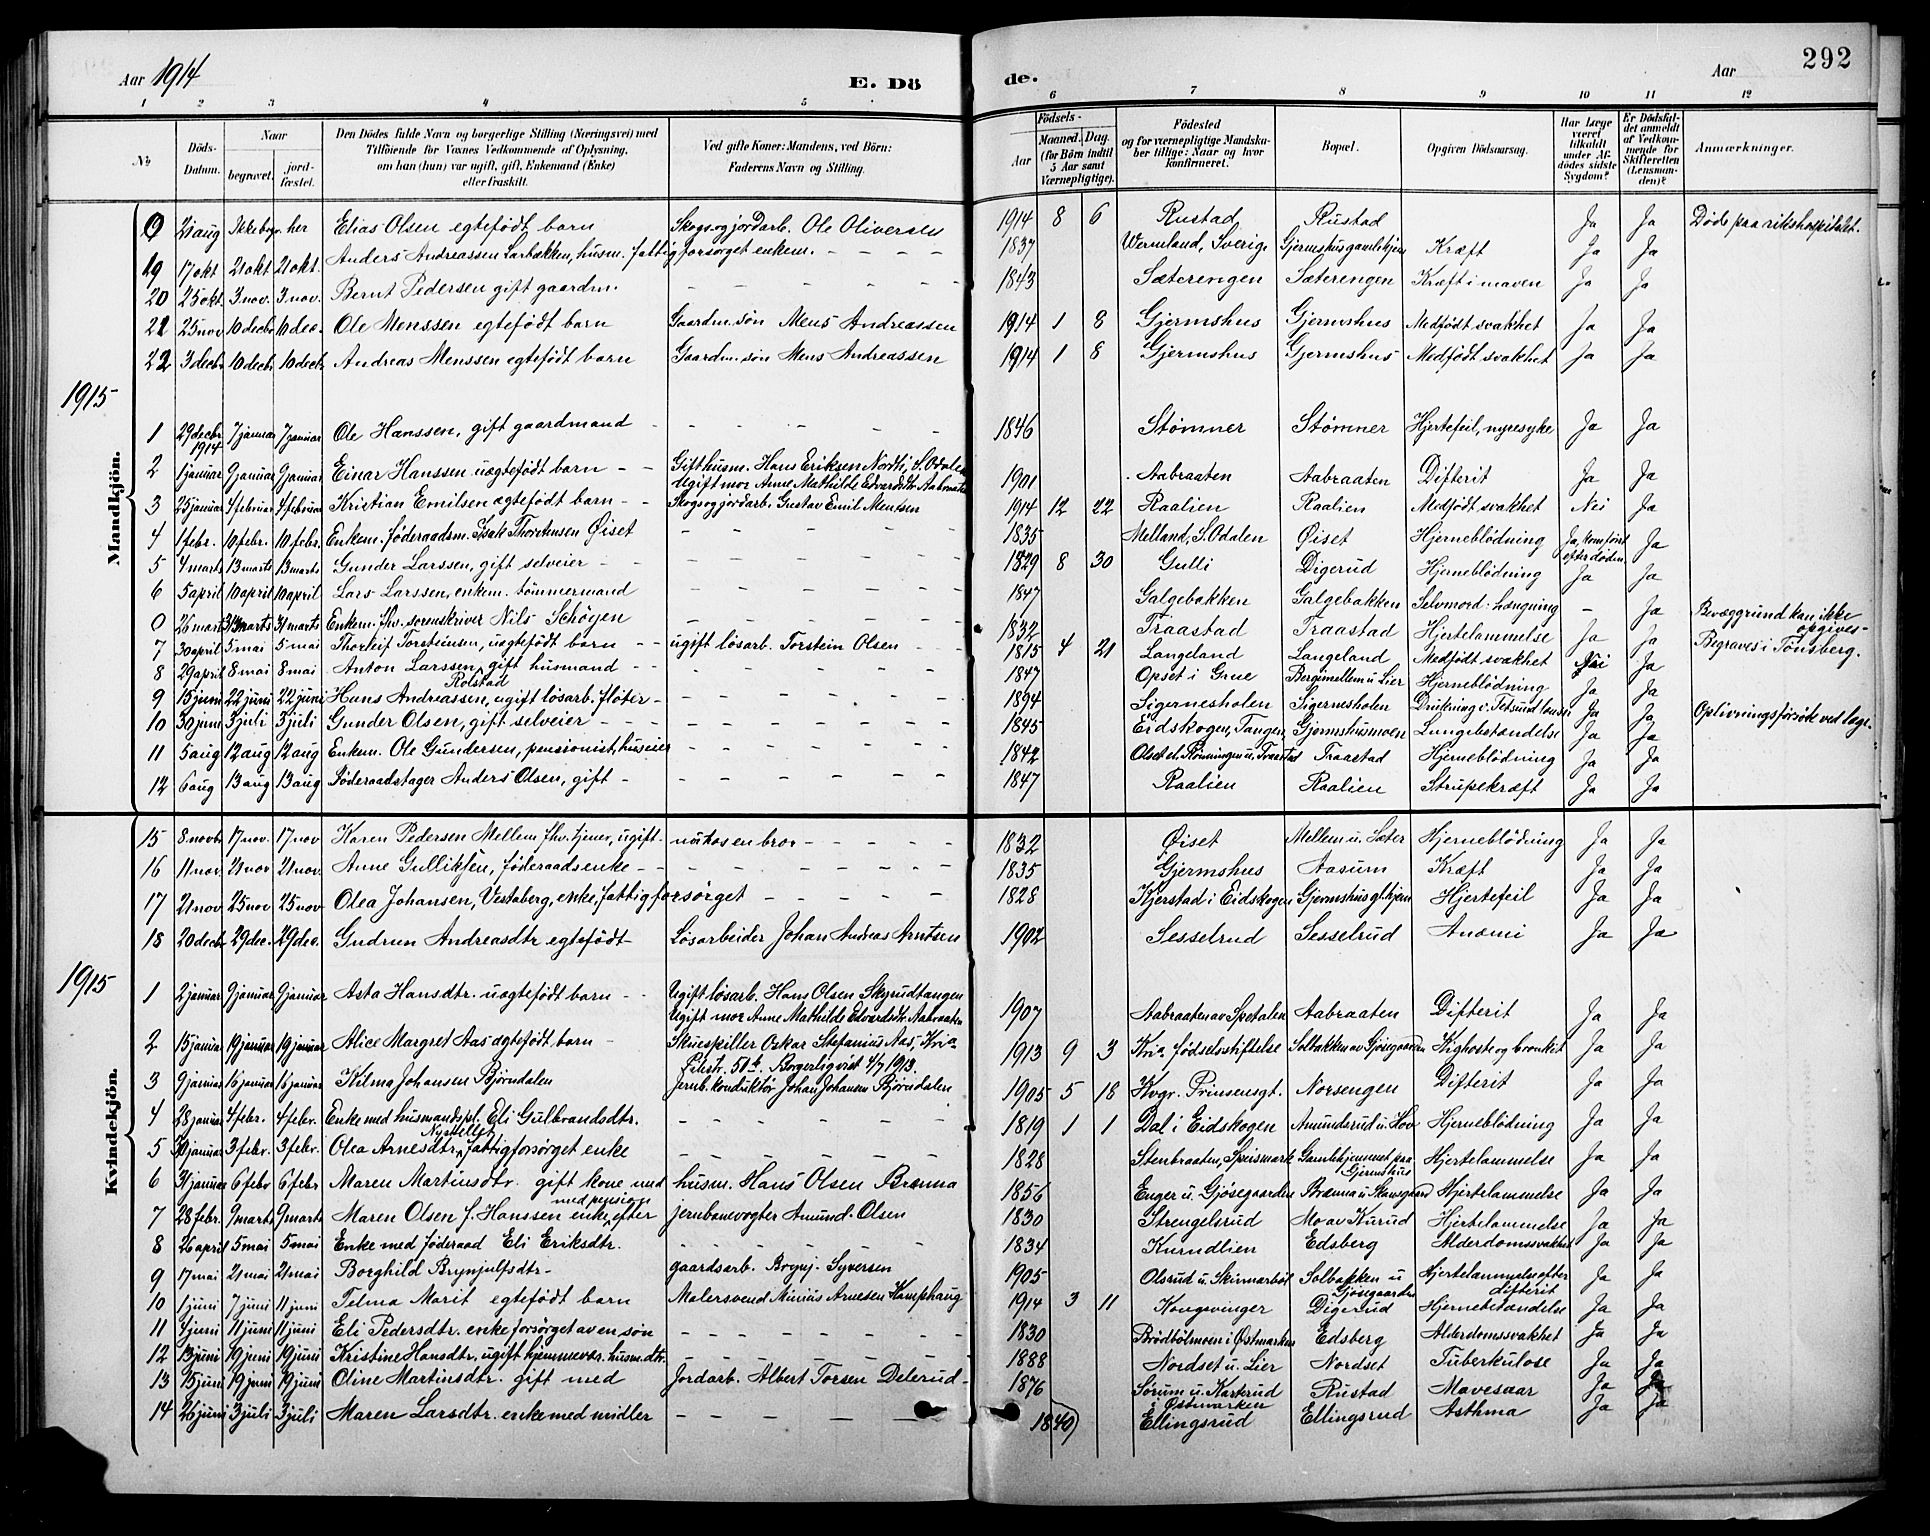 Aar 1914
E. Dö
de.
Aar
292
1 2 3 4 5 6 7 8 9 10 11 12
No
Döds-Datum.
Naar begravet. jord-fæstet.
Den Dödes fulde Navn og borgerlige Stilling (Næringsvei) med Tilföiende for Voxnes Vedkommende af Oplysning, om han (hun) var ugift, gift, Enkemand (Enke) eller fraskilt.
Ved gifte Koner: Mandens, ved Börn: Faderens Navn og Stilling.
Födsels-
Aar
Maaned. Dag. (for Börn indtil 5 Aar samt Værnepligtige).
Födested og for værnepligtige Mandskaber tillige: Naar og hvor konfirmeret.
Bopæl.
Opgiven Dödsaarsag.
Har Læge været tilkaldt under Afdödes sidste Sygdom?
Er Dödsfaldet anmeldt af Vedkommende for Skifteretten (Lensmanden)?
Anmærkninger.
Mandkjön.
0 21 aug Ikke begr. her Elias Olsen egtefödt barn Skogs og jordarb. Ole Oliversen 1914 8 6 Rustad Rustad Ja Ja Döde paa rikshospitalet.
19 17 okt 21 okt 21 okt. Anders Andreassen Larbakken, husm. fattigforsörget enkem. 1837 Wermland, Sverige Gjermshus gamlehjem Kræft Ja Ja
20 25 okt. 3 nov. 3 nov. Bernt Pedersen gift gaardm. 1843 Sæterengen Sæterengen Kræft i maven Ja Ja
21 25 nov 10 decbr 10 dec. Ole Menssen egtefödt barn Gaardm. sön Mens Andreassen 1914 1 8 Gjermshus Gjermshus Medfödt svakhet Ja Ja
22 3 decbr 10 decbr 10 decbr Andreas Menssen egtefödt barn Gaardm. sön Mens Andreassen 1914 1 8 Gjermshus Gjermshus Medfödt svakhet Ja Ja
1915
1 29 decbr 1914 7 januar 7 januar Ole Hanssen, gift gaardmand 1846 Stømner Stømner Hjertefeil, nyresyke Ja Ja
2 1 januar 9 januar 9 januar Einar Hanssen uegtefödt barn Gift husm. Hans Eriksen North i S. Odalen
Ugift mor Anne Mathilde Edvardsdtr. Aabraaten 1901 Aabraaten Aabraaten Difterit Ja Ja
3 25 januar 4 februar 4 februar Kristian Emilsen egtefödt barn Skogs og jordarb. Gustav Emil Mentsen 1914 12 22 Raalien Raalien Medfödt svakhet Nei Ja
4 1 febr. 10 febr. 10 febr. Enkem. föderaadsm. Isak Thorstensen Øiset 1835 Melland, S. Odalen Øiset Hjerneblödning Ja, kom först efter döden Ja
5 4 marts 13 marts 13 marts Gunder Larssen, gift selveier 1829 8 30 Gulli Digerud Hjerneblödning Ja Ja
6 5 april 10 april 10 april Lars Larssen, enkem. tömmermand 1847 Galgebakken Galgebakken Selvmord: hængning – Ja Bevæggrund kan ikke opgives
0 26 marts 31 marts 31 marts Enkem. fhv. sorenskriver Nils Schöyen 1832 Traastad Traastad Hjertelammelse Ja Ja Begraves i Tönsberg.
7 30 april 5 mai 5 mai Thorleif Torsteinsen, uegtefödt barn ugift lösarb. Torstein Olsen 1815 4 21 Langeland Langeland Medfödt svakhet Nei Ja
8 29 april 8 mai 8 mai Anton Larssen gift husmand 1847 Opset i Grue Berg mellem u Lier Hjerneblödning Ja Ja
9 15 juni 22 juni 22 juni Hans Andreassen, Rolstad ugift lösarb. flöter 1894 Sigernesholen Sigernesholen Drukning v. Tetsund lense Ja Ja Oplivningsforsök ved læge.
10 30 juni 3 juli 3 juli Gunder Olsen, gift selveier 1845 Eidskogen, Tangen Gjermshusmoen Lungebetændelse Ja Ja
11 5 aug 12 aug 12 aug Enkem. Ole Gundersen, pensionist, huseier 1842 Olset el. Röningen u. Traastad Traastad Hjerneblödning Ja Ja
12 6 aug 13 aug 13 aug Föderaadstager Anders Olsen, gift 1847 Raalien Raalien Strupekræft Ja Ja
Kvindekjön.
15 8 novb 17 nov. 17 nov Karen Pedersen Mellem fhv. tjener, ugift nu hos en bror 1832 Øiset Mellem u. Sæter Hjerneblödning Ja Ja
16 11 nov. 21 nov 21 nov. Anne Gulliksen, föderaadsenke 1835 Gjermshus Aasum Kræft Ja Ja
17 21 nov 25 nov 25 nov Olea Johansen, Vestaberg, enke, fattigforsörget 1828 Kjerstad i Eidskogen Gjermshus gl.hjem Hjertefeil Ja Ja
18 20 decb 29 dec. 29 dec. Gudrun Andreasdtr egtefödt Lösarbeider Johan Andreas Arntsen 1902 Sesselrud Sesselrud Anæmi Ja Ja
1915
1 2 januar 9 januar 9 januar Asta Hansdtr. uegtefödt barn Ugift lösarb. Hans Olsen Skyrudtangen
Ugift mor Anne Mathilde Edvardsdtr. Aabraaten 1907 Aabraaten av Spetalen Aabraaten Difterit Ja Ja
2 15 januar 19 januar 19 januar Alice Margret Aas egtefödt barn Skuespiller Oskar Stefanius Aas, Kria
Pilestr. 50b. Borgerlig viet 4/7 1913. 1913 9 3 Kria födselsstiftelse Solbakken av Gjösegaarden Kighoste og bronkit Ja Ja
3 9 januar 16 januar 16 januar Kilma Johansen Bjørndalen Jernb. konduktör Johan Johansen Bjørndalen 1905 5 18 Kvgr. Prinsensgt. Norsengen Difterit Ja Ja
4 28 januar 4 febr. 4 febr. Enke med husmandspl. Eli Gulbrandsdtr. 1819 1 1 Dal i Eidskogen Amundsrud u. Hov Hjerneblödning Ja Ja
5 30 januar 3 febr. 3 febr. Olea Arnesdtr. Nystellet fattigforsørget enke 1828 Stenbraaten, Speismark Gamlehjemmet paa Gjermshus Hjertelammelse Ja Ja
6 31 januar 6 febr 6 febr Maren Martinsdtr. gift kone med husm. Hans Olsen Brænna 1856 Enger u. Gjösegaarden Brænna u Skansgaard Hjertelammelse Ja Ja
7 28 febr. 9 marts 9 marts Maren Olsen f. Hanssen enke med pension efter jernbanevogter Amund Olsen 1830 Strengelsrud Mo av Kurud Hjertelammelse Ja Ja
8 26 april 5 mai 5 mai Enke med föderaad Eli Eriksdtr. 1834 Kurudlien Edsberg Alderdomssvakhet Ja Ja
9 17 mai 21 mai 21 mai Borghild Brynjulfsdtr. gaardsarb. Brynj. Syversen 1905 Olsrud u. Skinnarböl Solbakken u Gjösegaarden Hjertelammelse efter difterit Ja Ja
10 1 juni 7 juni 11 juni Telma Marit egtefödt barn Malersvend Minius Arnesen Kamphaug 1914 3 11 Kongsvinger Digerud Hjernebetændelse Ja Ja
11 4 juni 11 juni 11 juni Eli Pedersdtr. enke forsörget av en sön 1830 Brödbölmoen i Østmarken Edsberg Alderdomssvakhet Ja Ja
12 13 juni 19 juni 19 juni Kristine Hansdtr. ugift hjemmevær. husm.dtr. 1888 Nordset u. Lier Nordset Tuberkulose Ja Ja
13 15 juni 19 juni 19 juni Oline Martinsdtr. gift med Jordarb. Albert Torsen Delerud 1876 Sörum u. Karterud i Østmarken Rustad Mavesaar Ja Ja
14 26 juni 3 juli 3 juli Maren Larsdtr. enke med midler 1840 Ellingsrud Ellingsrud Asthma Ja Ja